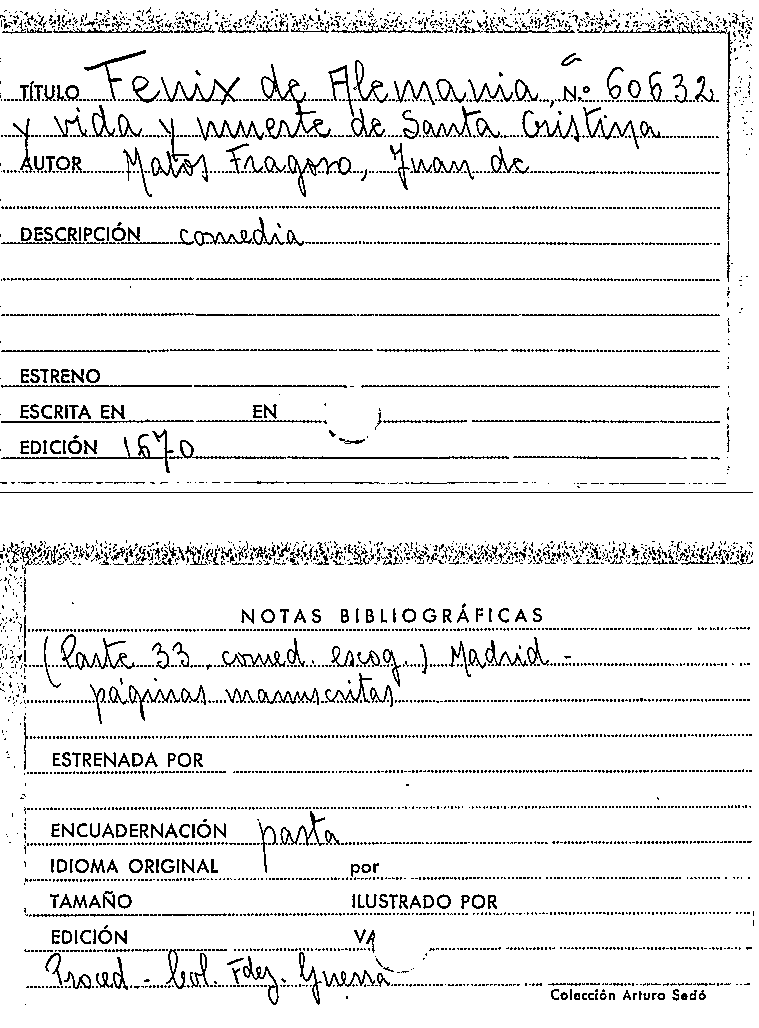 TÍTULO Fenix de Alemania, N.º 60632
y vida y muerte de Santa Cristina
AUTOR Matos Fragoso, Juan de
DESCRIPCIÓN comedia
ESTRENO
ESCRITA EN EN
EDICIÓN 1670
NOTAS BIBLIOGRÁFICAS
(Parte 33. comed. escog.) Madrid -
páginas manuscritas
ESTRENADA POR
ENCUADERNACIÓN pasta
IDIOMA ORIGINAL por
TAMAÑO ILUSTRADO POR
EDICIÓN
Proced - Col. Fdez. Guerra
Colección Arturo Sedó